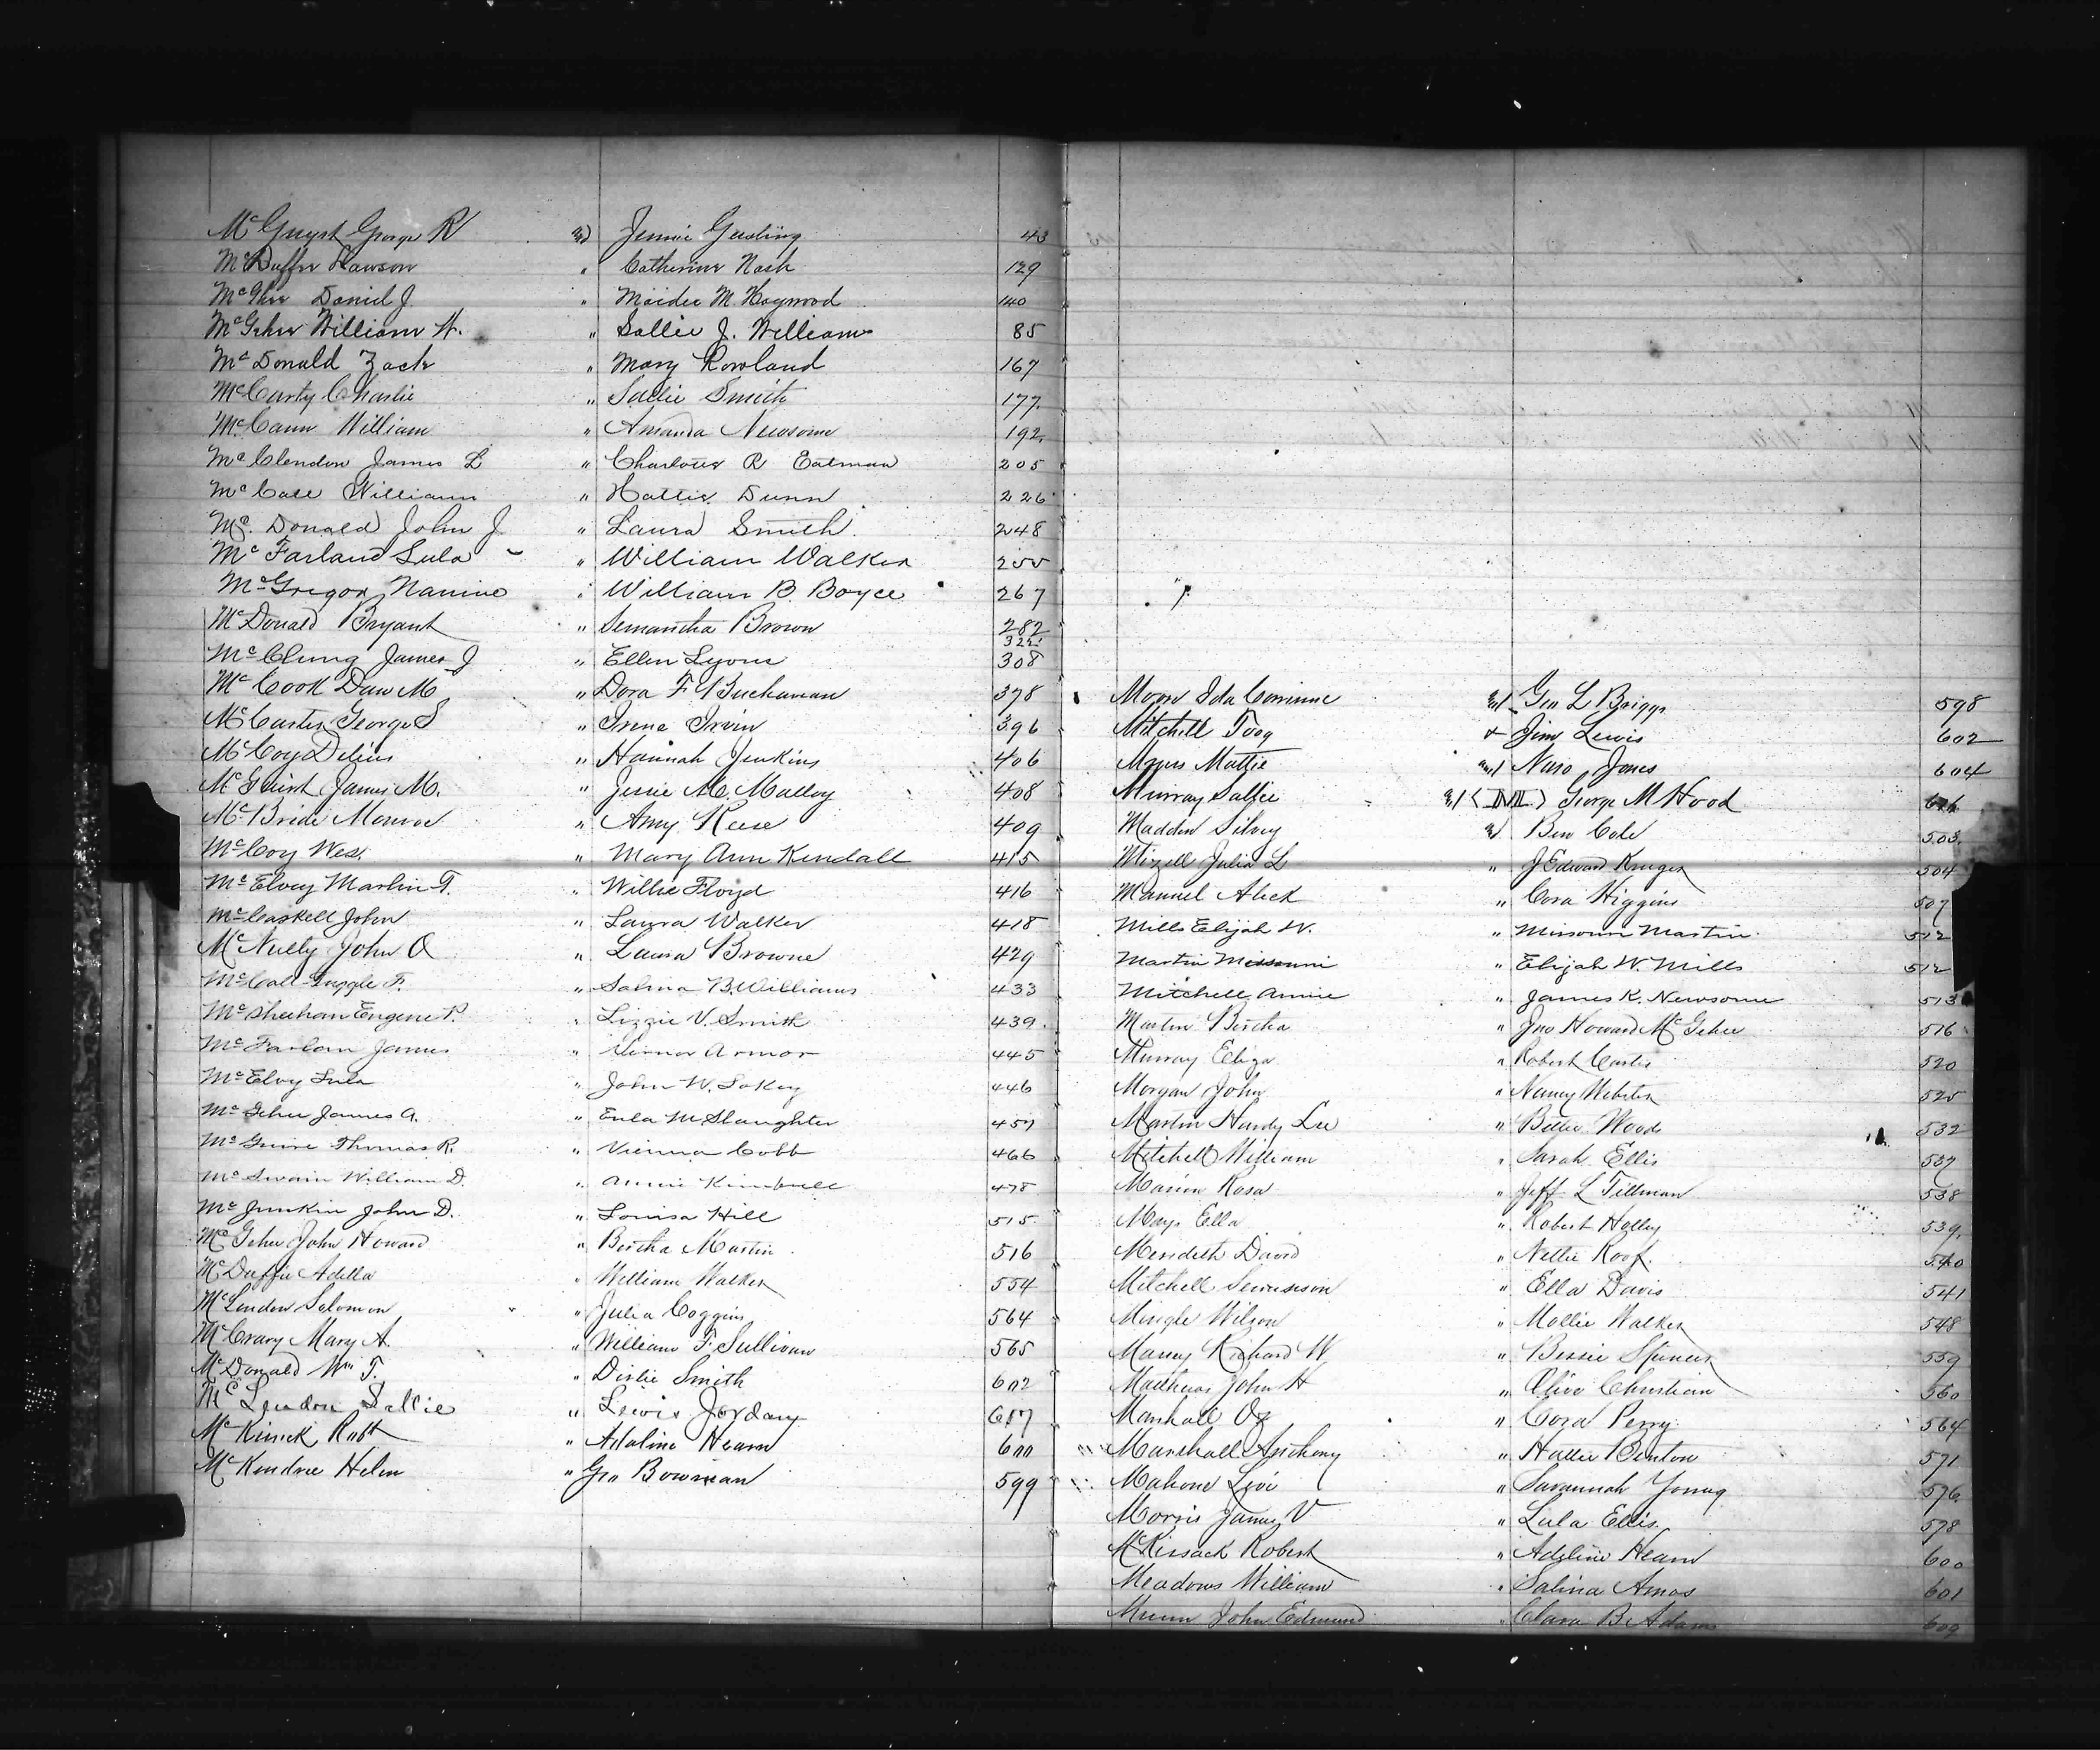 McGuyst George R &) Jennie Gosling 43
McDuffie Lawson " Catherine Nash 129
McGhee Daniel J. " Maidee M. Haywood 140
McGehee William H. " Sallie J. Williams 85
McDonald Zack " Mary Rowland 167
McCarty Charlie " Sallie Smith 177
McCann William " Amanda Newsome 192
McClendon James L " Charlotte R Eatman 205
McCall William " Hattie Dunn 226
McDonald John J " Laura Smith 248
McFarland Lula " William Walker 255
McGregor Nannie " William B. Boyce 267
McDonald Bryant " Semantha Brown 282
322
McClung James J " Ellen Lyons 308
McCook Dan M " Dora F Buchanan 378
McCarter George S " Irene Irvin 396
McCoy Delius " Hannah Jenkins 406
James M. " Jessie M. Malloy 408
McBride Monroe " Amy Reese 409
McCoy Wes. " Mary Ann Kendall 415
McElvey Martin T. " Willie Floyd 416
McCaskell John " Laura Walker 418
McNulty John O " Laura Browne 429
McCall F. " Salma B. Williams 433
McSheehan Eugene P. " Lizzie V. Smith 439
McFarlan James " Armor 445
McElvy Lula " John W. Lokey 446
McGehee James A. " Eula M Slaughter 457
McGuire Thomas R. " Vienna Cobb 466
McSwain William D. " Annie Kimbrell 478
McJunkin John D. " Louisa Hill 515
McGehee John Howard " Bertha Martin 516
McDuffie Adella " William Walker 554
McLendon Solomon " Julia Coggins 564
McCrary Mary A. " William F. Sullivan 565
McDonald Wm T. " Dixie Smith 602
McLendon Sallie " Lewis Jordan 617
McKissick Robt " Adaline Hearn 600
McKendree Helen " Geo Bowman 599
Moore Ida Corrinne &) Geo L Briggs 598
Mitchell Toog & Jim Lewis 602
Myers Mattie and Jones 604
Murray Sallie &) George M Hood
Madden Silvey &) Ben Cole 503
Mizell Julia L " J Edward Kruger 504
Manuel Aleck " Cora Higgins 507
Mills Elijah W. " Missouri Martin 512
Martin Missouri " Elijah W. Mills 512
Mitchell Annie " James K. Newsome 513
Martin Bertha " Jno Howard McGehee 516
Murray Eliza " Robert Carter 520
Morgan John " Nancy Webster 525
Martin Hardy Lee " Bettie Woods 532
Mitchell William " Sarah Ellis 537
Marion Rosa " Jeff L Tillman 538
Mays Ella " Robert Holley 539
Merideth David " Nettie Roof 540
Mitchell " Ella Davis 541
Mingle Wilson " Mollie Walker 548
Richard W " Bessie Spencer 559
Mathews John H " Olive Christian 560
Marshall Oz " Cora Perry 564
Marshall Anthony " Hattie Benton 571
Mahone Levi " Savannah Young 576
Morris James V " Lula Ellis 578
McKissack Robert " Adeline Hearn 600
Meadows William " Salina Amos 601
Munn John Edmund " Clara B. Adams 609